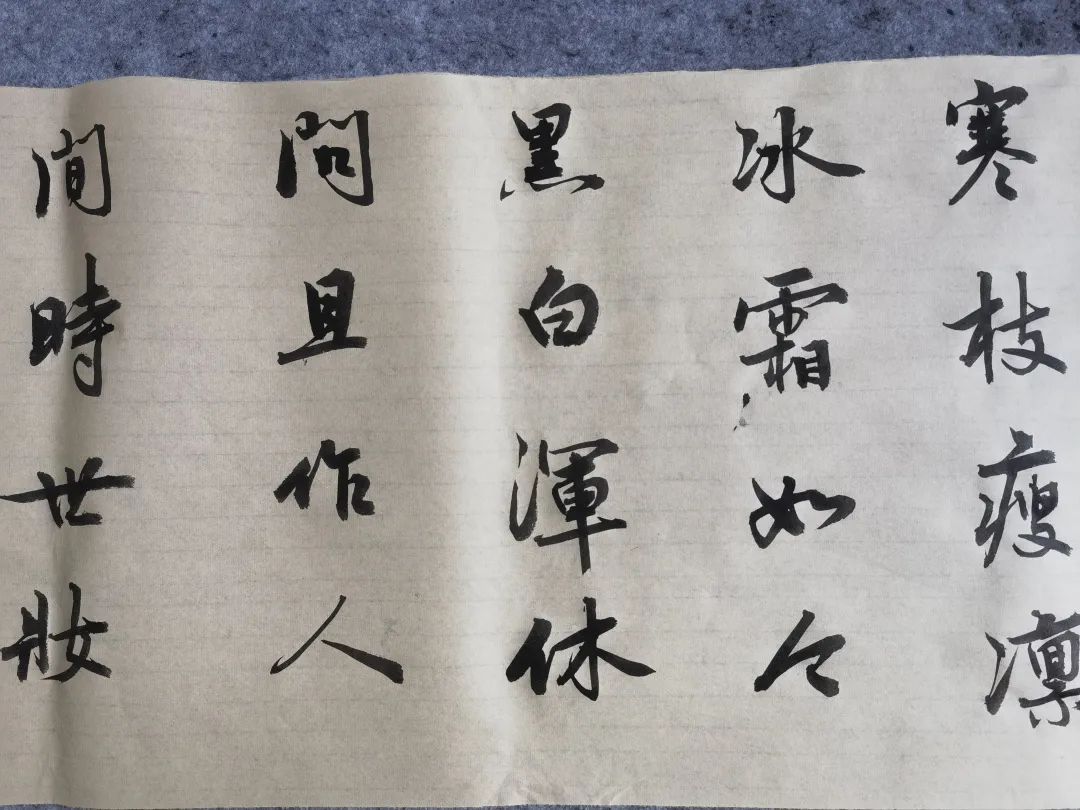 寒枝瘦凛
冰霜如今
黑白渾休
問且作人
間時世妝